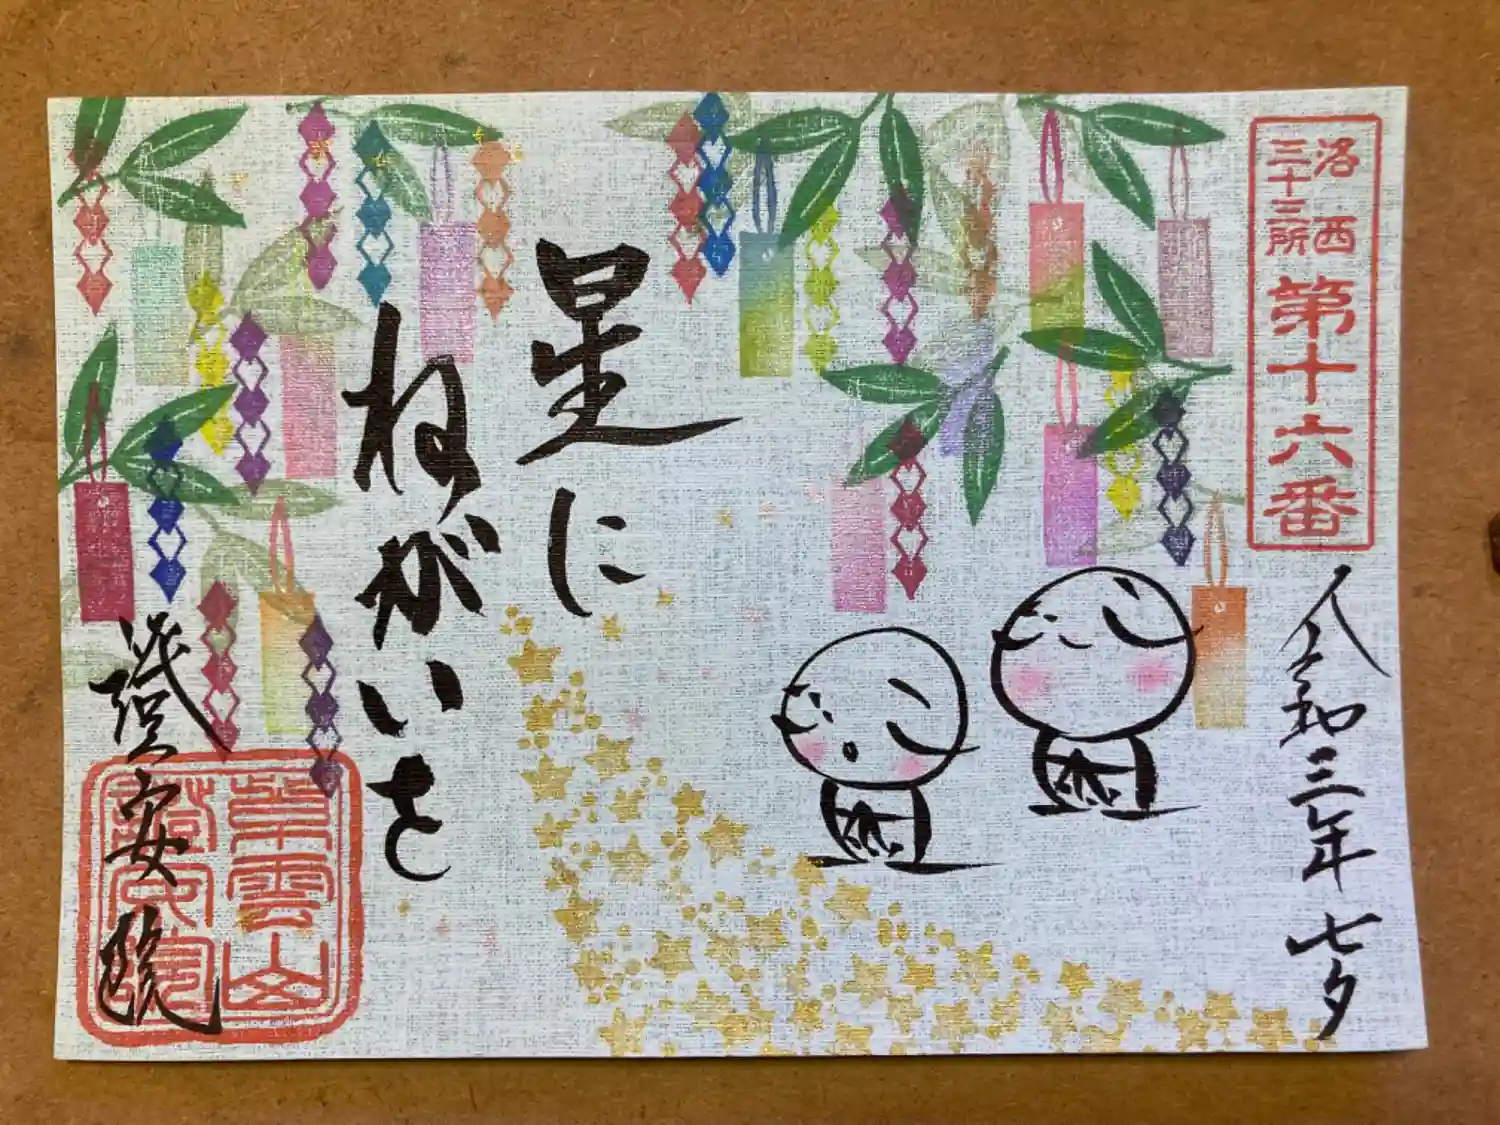 洛西
三十三所
第十六番
令和三年 七夕
星に
ねがいを
證安院
紫雲山
證安院